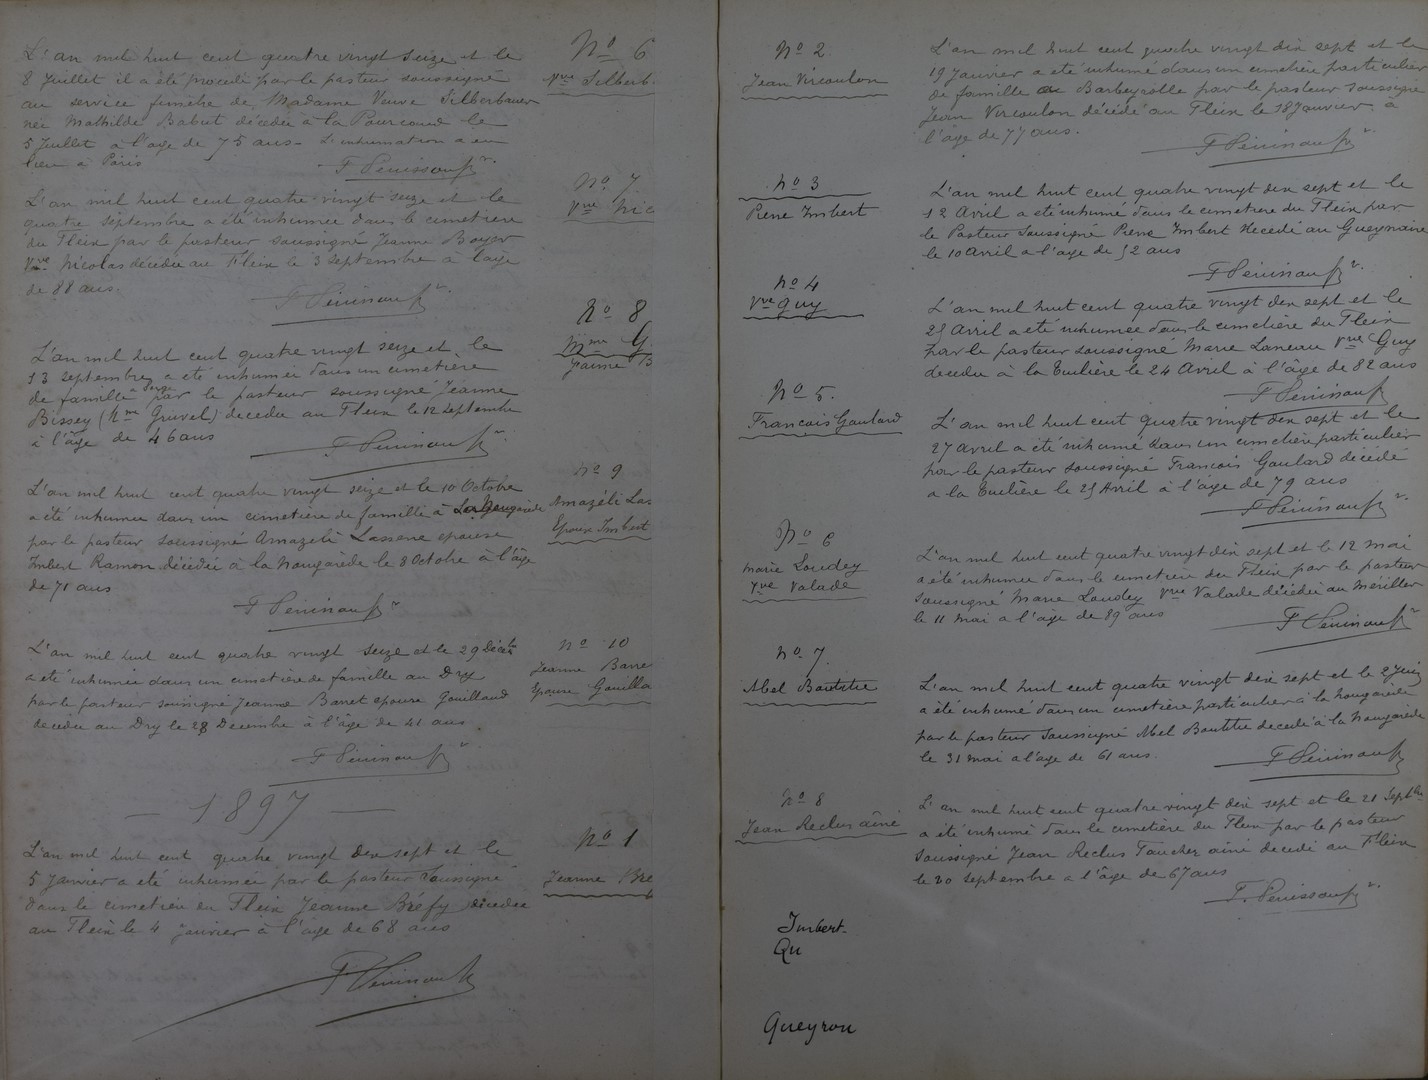 L'an mil huit cent quatre vingt seize et le
8 Juillet il a été procédé par le pasteur soussigné
au service funèbre de Madame Veuve Silberbauer
née Mathilde Babut décédée à la le
5 Juillet à l'âge de 75 ans - L'inhumation a eu
lieu à Paris
No 6
Vve Silberb
L'an mil huit cent quatre vingt seize et le
quatre septembre a été inhumée dans le cimetière
du Fleix par le pasteur soussigné Jeanne Boyer
Vve Nicolas décédée au Fleix le 3 septembre à l'age
de 88 ans.
No 7
Vve Nic
L'an mil huit cent quatre vingt seize et le
13 septembre a été inhumée dans un cimetière
de famille par le pasteur soussigné Jeanne
Bissey (Mme Gruvel) décédée au Fleix le 12 septembre
à l'âge de 46 ans
No 8
Mme G
Jeanne B
L'an mil huit cent quatre vingt seize et le 10 Octobre
a été inhumée dans un cimetière de famille à
par le pasteur soussigné Amazéli Lasserre epouse
Imbert Ramon décédée à la Nougarède le 8 Octobre à l'âge
de 71 ans
No 9
Amazéli Las
Epouse Imbert
L'an mil huit cent quatre vingt seize et le 29 Décbre
a été inhumée dans un cimetière de famille au Dry
par le pasteur soussigné Jeanne Barret epouse Gouilland
décédée au Dry le 28 Decembre à l'âge de 41 ans
No 10
Jeanne Barre
Epouse Gouilla
- 1897 -
L'an mil huit cent quatre vingt dix sept et le
5 Janvier a été inhumée par le pasteur soussigné
dans le cimetière du Fleix Jeanne Bréfy décédée
au Fleix le 4 Janvier à l'âge de 68 ans
No 1
Jeanne Bre
No 2
Jean Vircoulon
L'an mil huit cent quatre vingt dix sept et le
19 Janvier a été inhumé dans un cimetière particulier
de famille au Barbeyrolle par le pasteur soussigné
Jean Vircoulon décédé au Fleix le 18 Janvier à
l'âge de 77 ans.
No 3
Pierre Imbert
L'an mil huit cent quatre vingt dix sept et le
12 Avril a été inhumé dans le cimetière du Fleix par
le Pasteur soussigné Pierre Imbert décédé au
le 10 Avril à l'age de 52 ans
No 4
Vve Guy
L'an mil huit cent quatre vingt dix sept et le
25 Avril a été inhumée dans le cimetière du Fleix
par le pasteur soussigné Marie Vve Guy
décédée à la Tuilière le 24 Avril à l'âge de 82 ans
No 5.
François Goulard
L'an mil huit cent quatre vingt dix sept et le
27 Avril a été inhumé dans un cimetière particulier
par le pasteur soussigné François Goulard décédé
a la Tuilière le 25 Avril à l'âge de 79 ans
No 6
Marie Loudey
Vve Valade
L'an mil huit cent quatre vingt dix sept et le 12 mai
a été inhumée dans le cimetière du Fleix par le pasteur
soussigné Marie Loudey Vve Valade décédée au
le 11 Mai à l'âge de 89 ans
No 7.
Abel Boutitie
L'an mil huit cent quatre vingt dix sept et le 2 Juin
a été inhumé dans un cimetière particulier à la Nougarède
par le pasteur soussigné Abel Boutitie décédé à la Nougarède
le 31 mai à l'age de 61 ans
No 8
Jean Reclus aîné
L'an mil huit cent quatre vingt dix sept et le 21 Septbre
a été inhumé dans le cimetière du Fleix par le pasteur
soussigné Jean Reclus Faucher aîné décédé au Fleix
le 20 septembre à l'âge de 67 ans
Imbert.
Qu
Queyrou